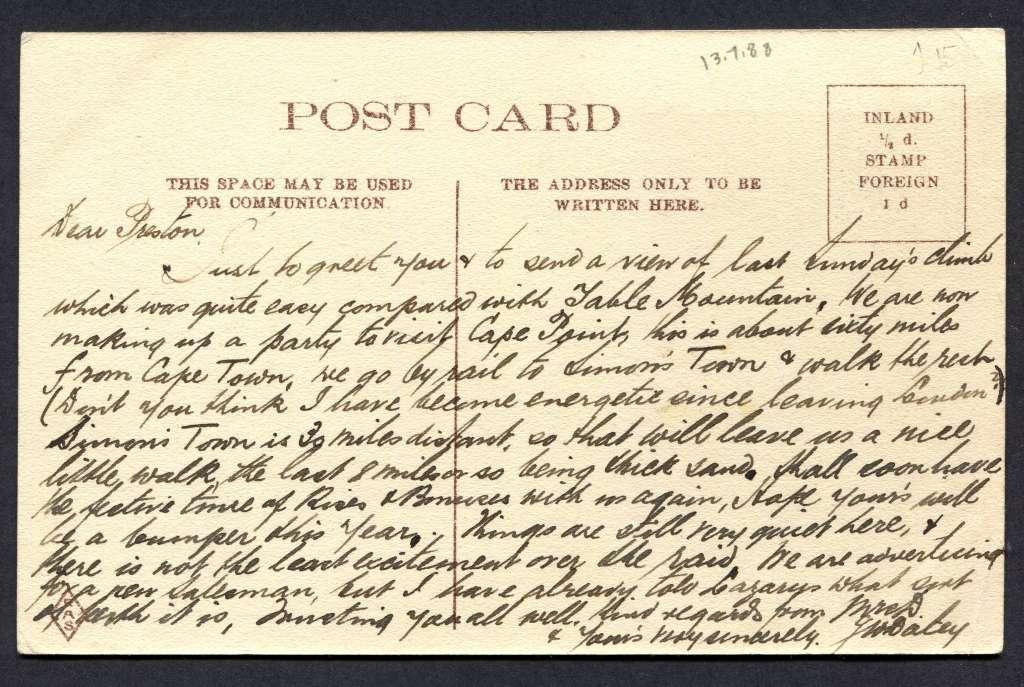 13.7.88
15
POST CARD
INLAND
½ d.
STAMP
FOREIGN
1 d
THIS SPACE MAY BE USED
FOR COMMUNICATION.
THE ADDRESS ONLY TO BE
WRITTEN HERE.
Dear Preston
Just to greet you & to send a view of last Sunday's climb
which was quite easy compared with Table Mountain. We are now
making up a party to visit Cape Point, this is about sixty miles
from Cape Town, we go by rail to Simon's Town & walk the rest
(Don't you think I have become energetic since leaving London?)
Simon's Town is 29 miles distant, so that will leave us a nice
little walk, the last 8 miles or so being thick sand. Shall soon have
the festive time of Rises & Bonuses with us again, Hope yours will
be a bumper this Year. Things are still very quiet here, &
there is not the least excitement over the raid. We are advertising
for a new salesman, but I have already told Lazarus what sort
it is, Trusting you all well. Kind regards from Mrs B.
& Yours very sincerely. J W Bailey